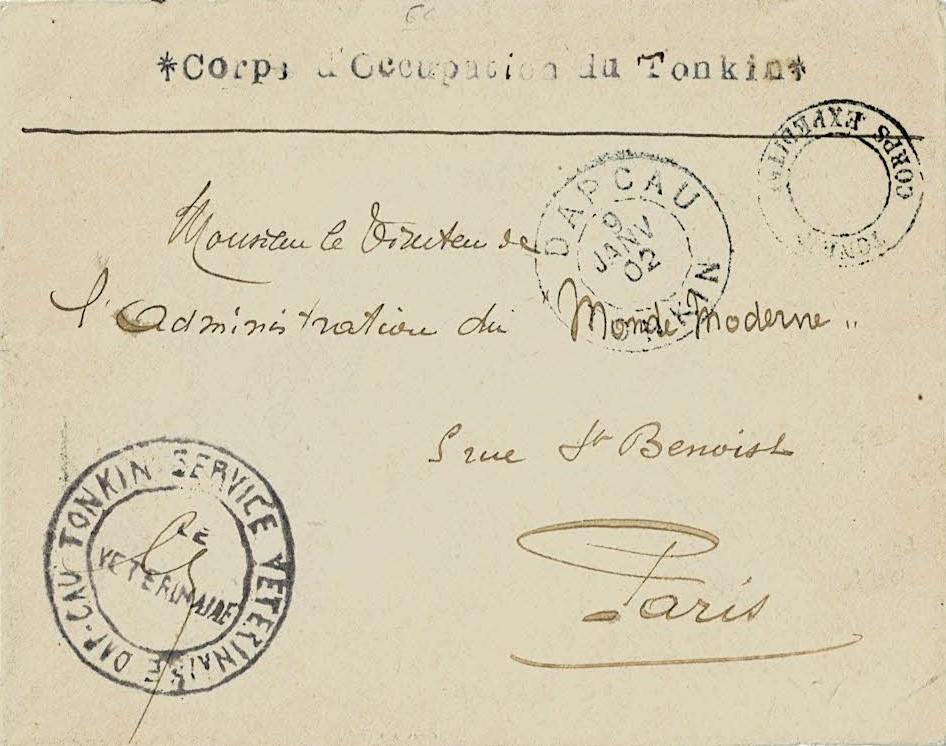 *Corps d'Occupation du Tonkin*
CORPS EXPEDIT
TONKIN
DAPCAU
9
JANV
02
TONKIN
Monsieur le Directeur de
l'Administration du "Monde Moderne"
5 rue St Benoist
Paris
TONKIN SERVICE VETERINAIRE DAP-CAU
LE
VETERINAIRE